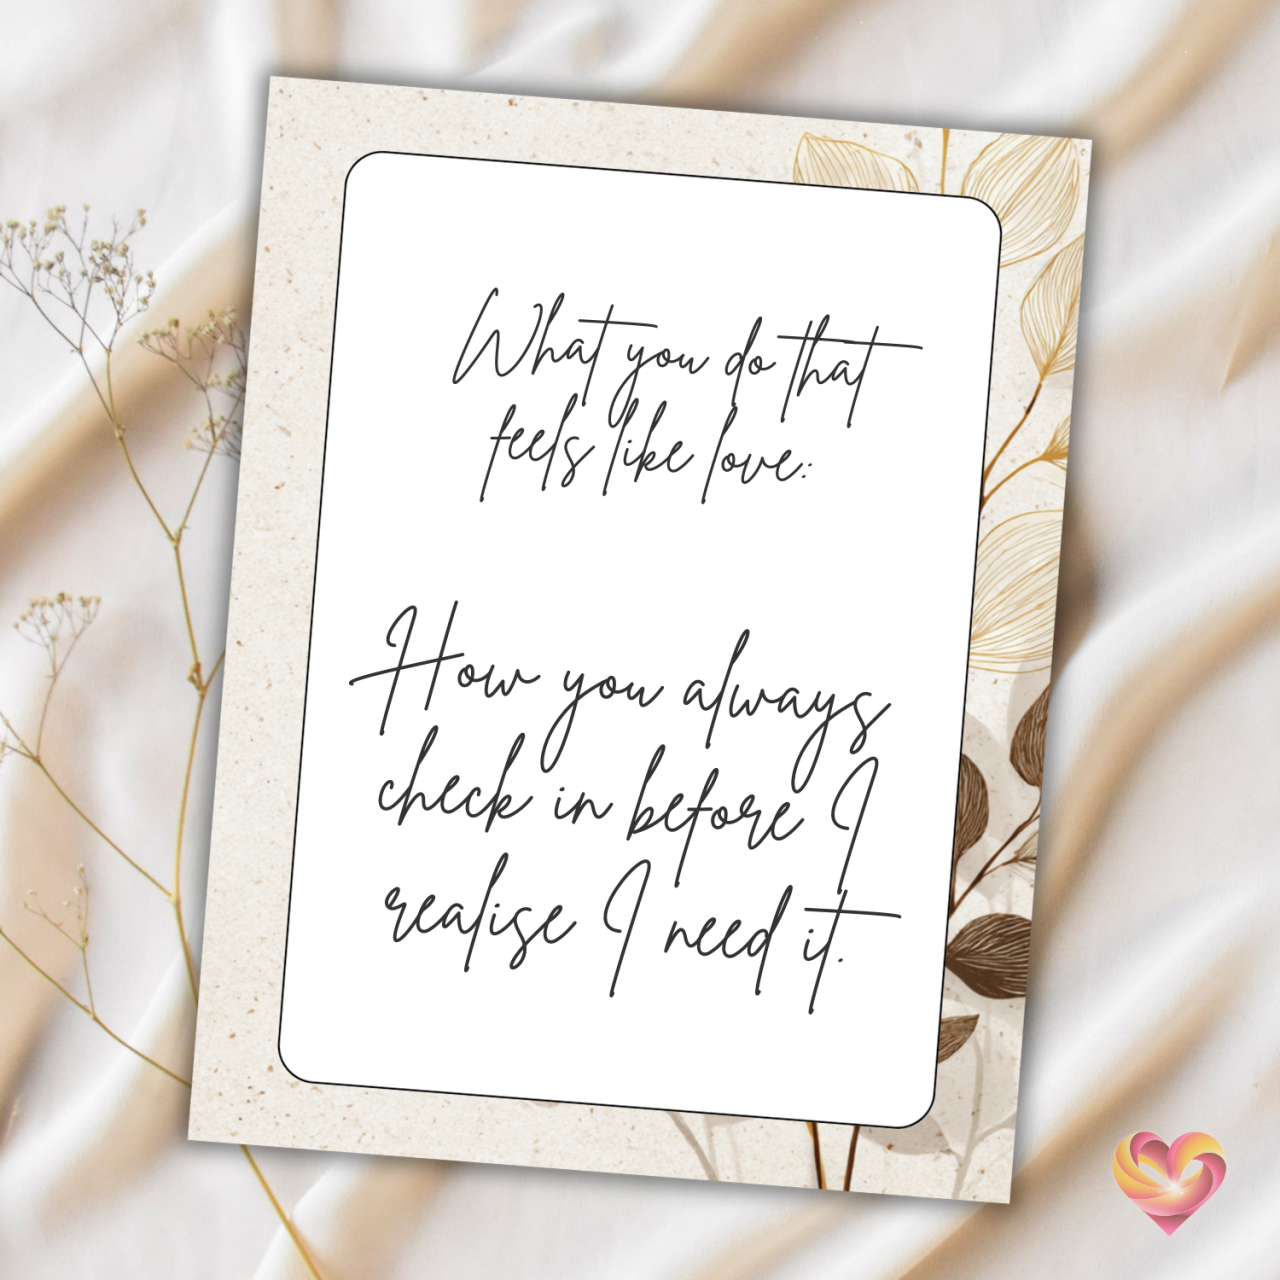 What you do that
feels like love:
How you always
check in before I
realise I need it.